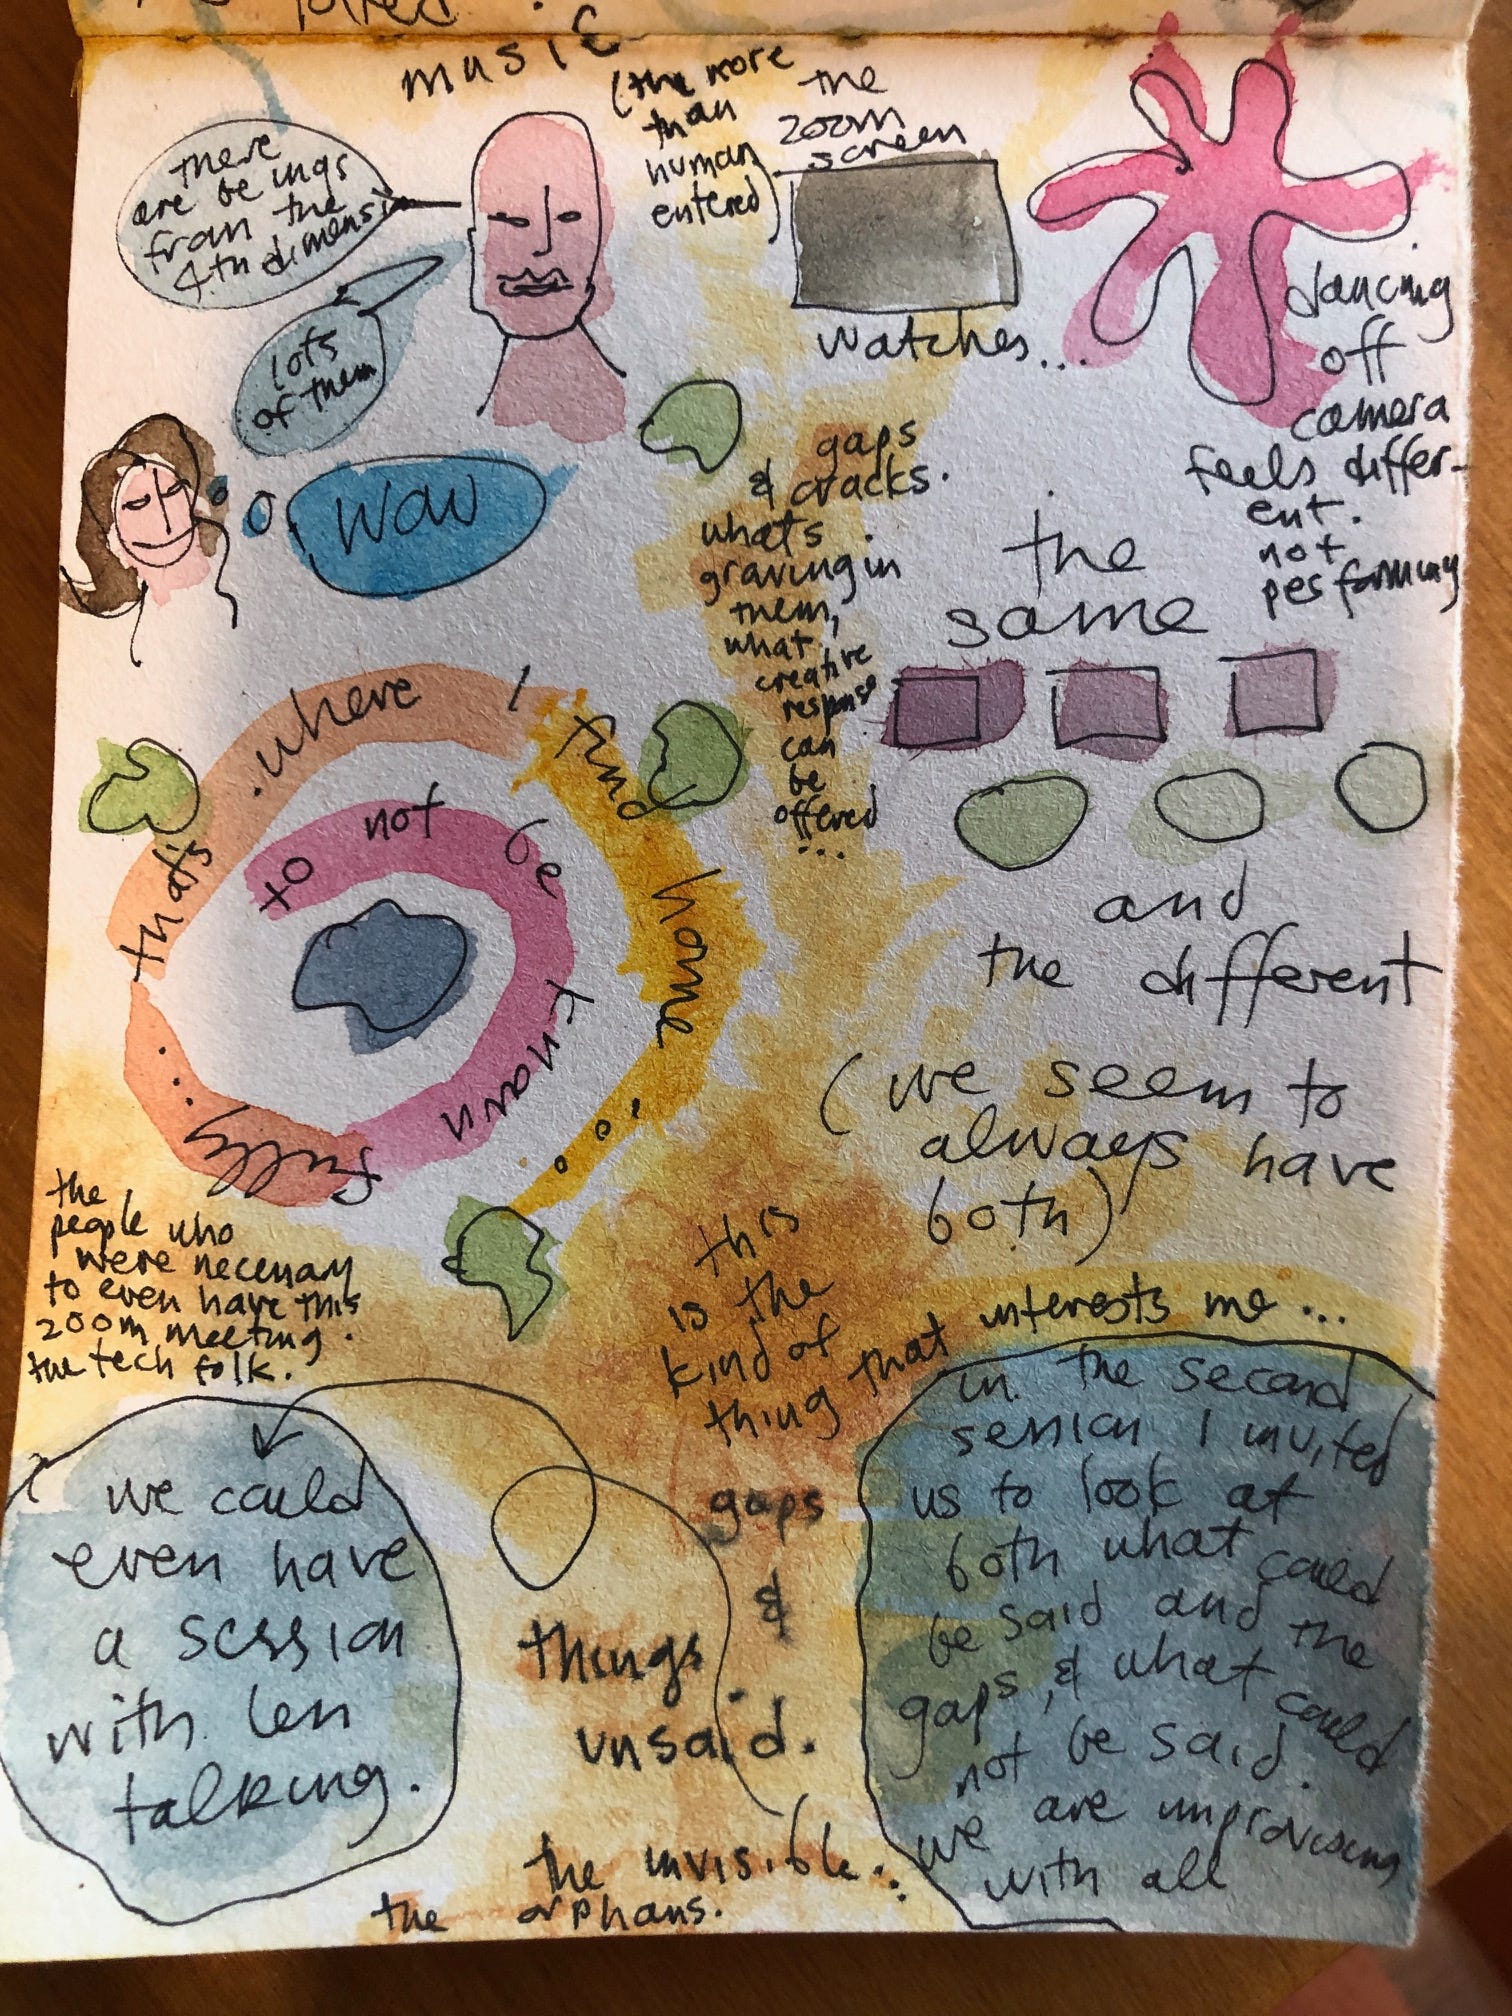 music
(the more
than
human
entered)
the
zoom
screen
watches...
there
are beings
from the
4th dimensi
lots
of them
wow
dancing
off
camera
feels differ-
ent.
not
performing
gaps
& cracks.
what's
growing in
them,
what
creative
response
can
be
offered
...
the
same
and
the different
(we seem to
always have
both)
that's where I find home...
to not be known fully...
the
people who
were necessary
to even have this
zoom meeting.
the tech folk.
this
is the
kind of
thing that interests me...
we could
even have
a session
with len
talking.
gaps
&
things
unsaid.
the invisible...
the orphans.
in the second
session I invited
us to look at
both what could
be said and the
gaps, & what could
not be said.
we are improvising
with all